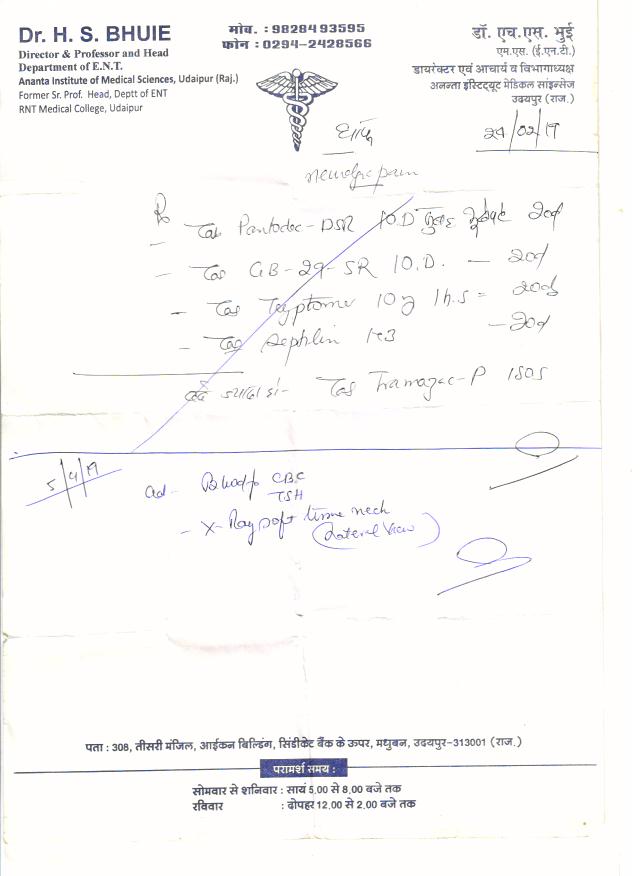 Dr. H. S. BHUIE
Director & Professor and Head
Department of E.N.T.
Ananta Institute of Medical Sciences, Udaipur (Raj.)
Former Sr. Prof. Head, Deptt of ENT
RNT Medical College, Udaipur
मोब. : 9828493595
फोन : 0294-2428566
डॉ. एच.एस. भुई
एम.एस. (ई.एन.टी.)
डायरेक्टर एवं आचार्य व विभागाध्यक्ष
अनन्ता इंस्टिट्यूट मेडिकल साइन्सेज
उदयपुर (राज.)
/02/19
pain
Tab Pantodac-DSR 1O.D 20d
- Tab GB-29-SR 1O.D. - 20d
- Tab Tryptomer 10 1h.s = 20d
- Tab - 20d
Tab Tramazac-P SOS
5/4/19
ad - Blood CBC
TSH
- X-Ray soft tissue neck
(Lateral View)
पता : 308, तीसरी मंजिल, आईकन बिल्डिंग, सिंडीकेट बैंक के ऊपर, मधुबन, उदयपुर-313001 (राज.)
परामर्श समय :
सोमवार से शनिवार : सायं 5.00 से 8.00 बजे तक
रविवार : दोपहर 12.00 से 2.00 बजे तक